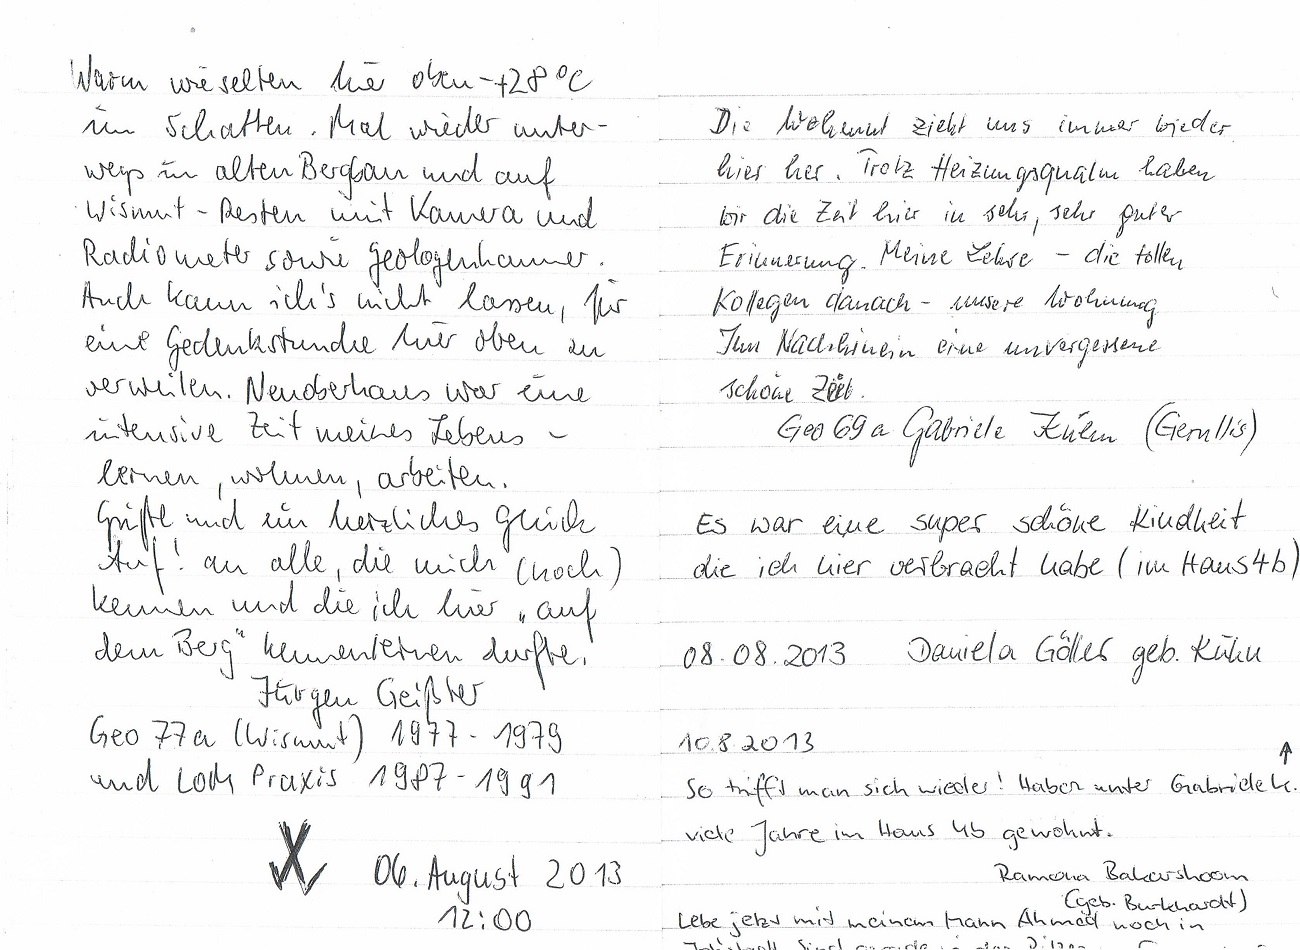 Warm wie selten hier oben - +28°C
im Schatten. Mal wieder unter-
wegs in alten Bergbau und auf
Wismut - Resten mit Kamera und
Radiometer sowie Geologenhammer.
Auch kann ich's nicht lassen, für
eine Gedenkstunde hier oben zu
verweilen. Neuoberhaus war eine
intensive Zeit meines Lebens -
lernen, wohnen, arbeiten.
Grüße und ein herzliches Glück
Auf! an alle, die mich (noch)
kennen und die ich hier „auf
dem Berg“ kennenlernen durfte.
Jürgen Geißler
Geo 77a (Wismut) 1977 - 1979
und Praxis 1987 - 1991
06. August 2013
12:00
Die zieht uns immer wieder
hier her. Trotz Heizungsqualm haben
wir die Zeit hier in sehr, sehr guter
Erinnerung. Meine Lehre - die tollen
Kollegen danach - unsere Wohnung
Im Nachhinein eine unvergessene
schöne Zeit.
Geo 69a Gabriele Kühn (Gerullis)
Es war eine super schöne Kindheit
die ich hier verbracht habe (im Haus 4b)
08.08.2013 Daniela Göller geb. Kühn
10.8.2013 ↑
So trifft man sich wieder! Haben unter Gabriele K.
viele Jahre im Haus 4b gewohnt.
Ramona
(geb. Burkhardt)
Lebe jetzt mit meinem Mann Ahmed noch in